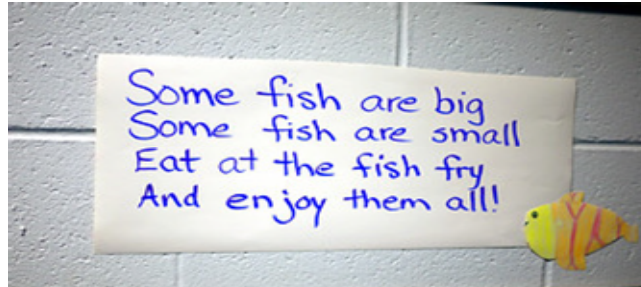 Some fish are big
Some fish are small
Eat at the fish fry
And enjoy them all!